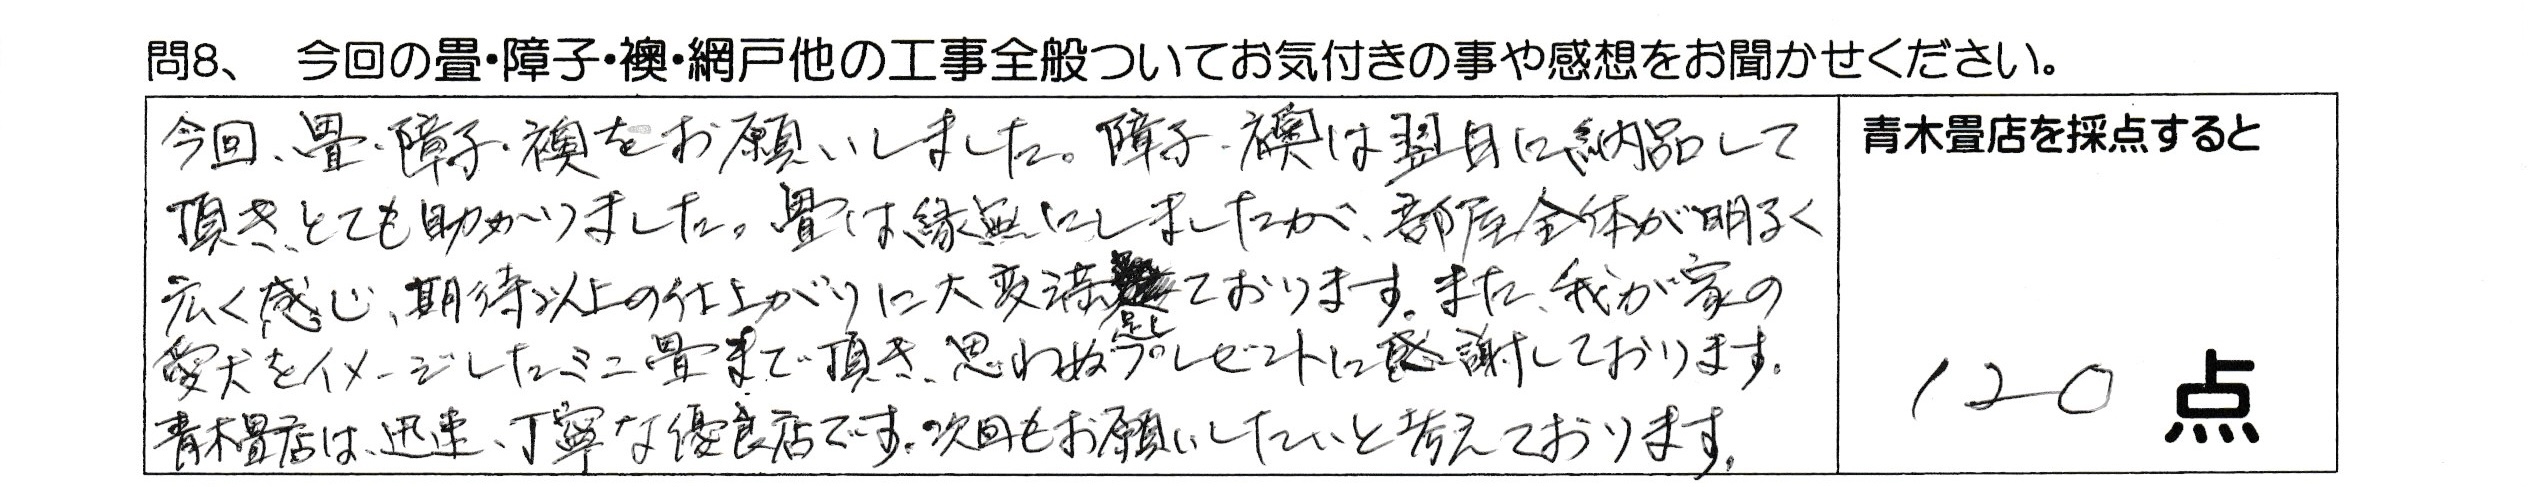 問8、 今回の畳・障子・襖・網戸他の工事全般ついてお気付きの事や感想をお聞かせください。
今回、畳・障子・襖をお願いしました。障子・襖は翌日に納品して
頂き、とても助かりました。畳は縁無にしましたが、部屋全体が明るく
広く感じ、期待以上の仕上がりに大変満足しております。また、我が家の
愛犬をイメージしたミニ畳まで頂き、思わぬプレゼントに感謝しております。
青木畳店は、迅速、丁寧な優良店です。次回もお願いしたいと考えております。
青木畳店を採点すると
120 点